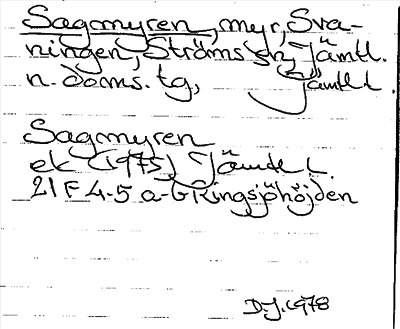 Sagmyren, myr, Sva-
ningen, Ströms sn, Jämtl.
n. doms. tg, Jämtl.
Sagmyren
ek (1975) Jämtl.
21F 4-5 a-b Ringsjöhöjden
D.J. 1978